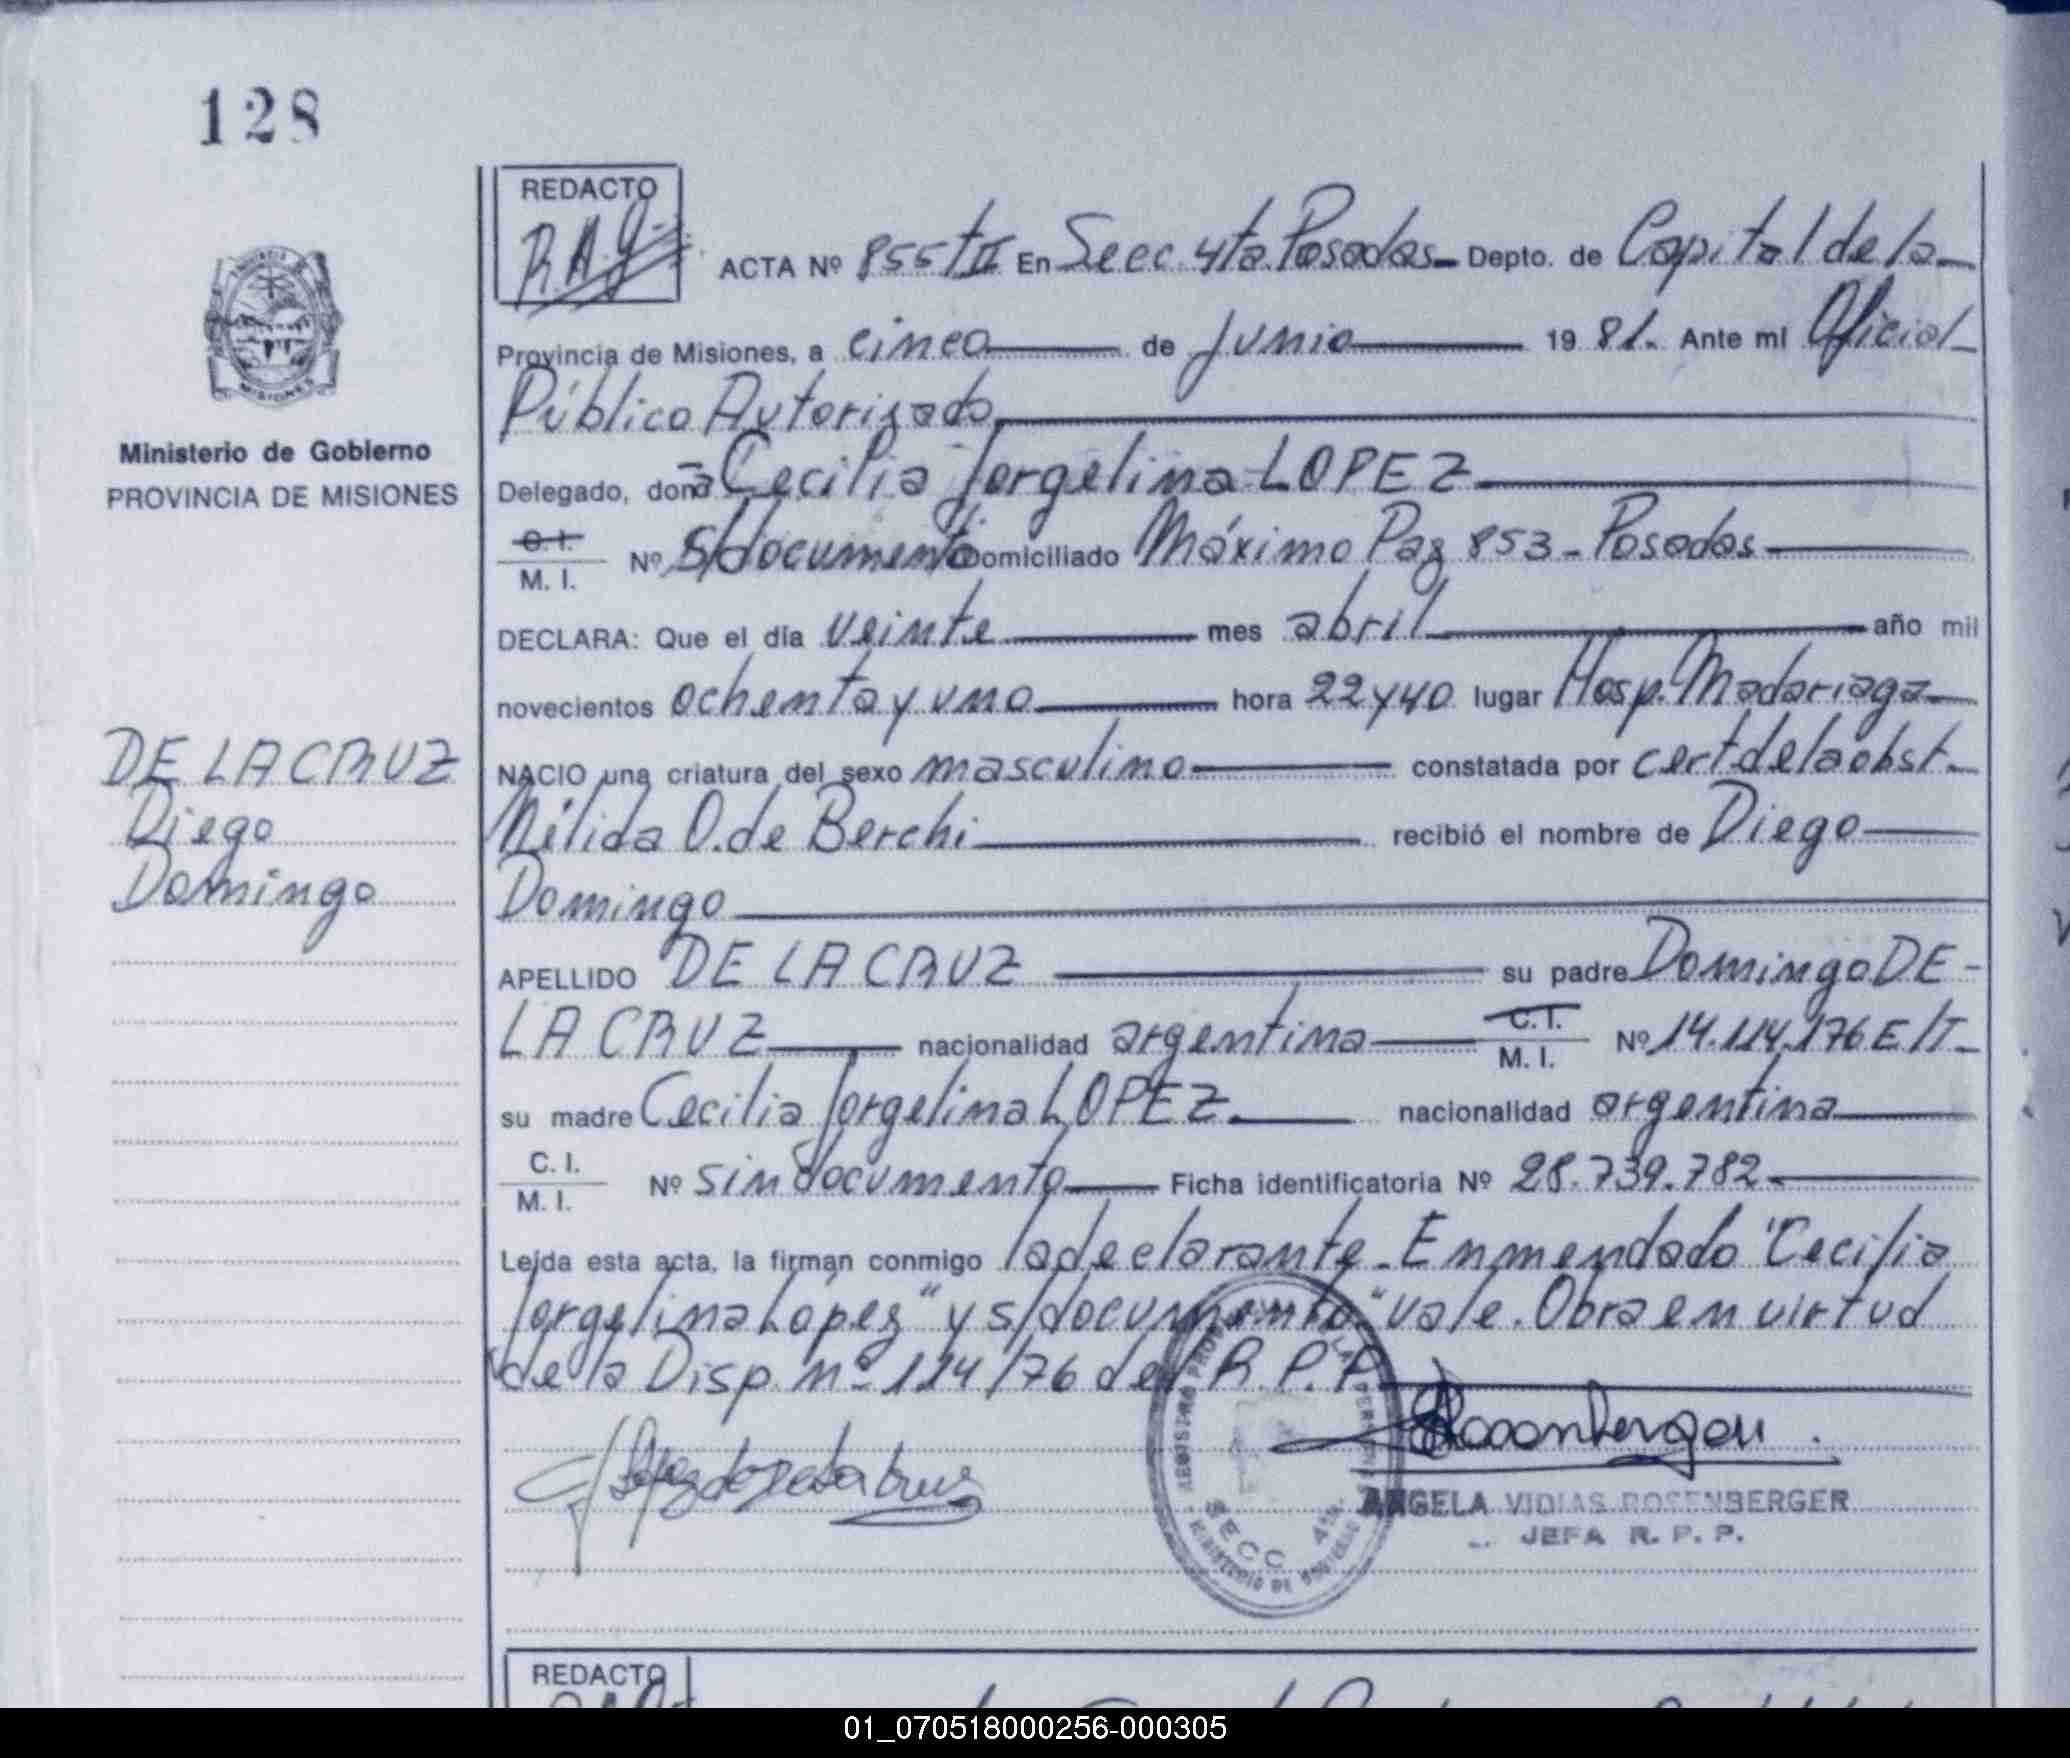 128
REDACTO
R.A.G.
ACTA Nº 855 tII En Secc. 4ta. Posadas Depto. de Capital de la
Provincia de Misiones, a cinco de Junio 19 81. Ante mi Oficial
Público Autorizado
Ministerio de Gobierno
PROVINCIA DE MISIONES
Delegado, dona Cecilia Jorgelina LOPEZ
C. I.
M. I. Nº S/documento Domiciliado Máximo Paz 853 - Posadas
DECLARA: Que el día veinte mes abril año mil
novecientos ochenta y uno hora 22 y 40 lugar Hosp. Madariaga
NACIO una criatura del sexo masculino constatada por cert de la obst.
Nélida O. de Berchi recibió el nombre de Diego
Domingo
DE LA CRUZ
Diego
Domingo
APELLIDO DE LA CRUZ su padre Domingo DE
LA CRUZ nacionalidad argentina C. I. M. I. Nº 14.114.176 E/T
su madre Cecilia Jorgelina LOPEZ. nacionalidad argentina
C. I.
M. I. Nº sin documento Ficha identificatoria Nº 28.739.782
Leida esta acta, la firman conmigo la declarante. Enmendado "Cecilia
Jorgelina López" y s/documento" vale. Obra en virtud
de la Disp. nº 114/76 del R.P.P.
SECC. 4ta.
ANGELA VIDIAS ROSENBERGER
JEFA R. P. P.
REDACTO
01_070518000256-000305